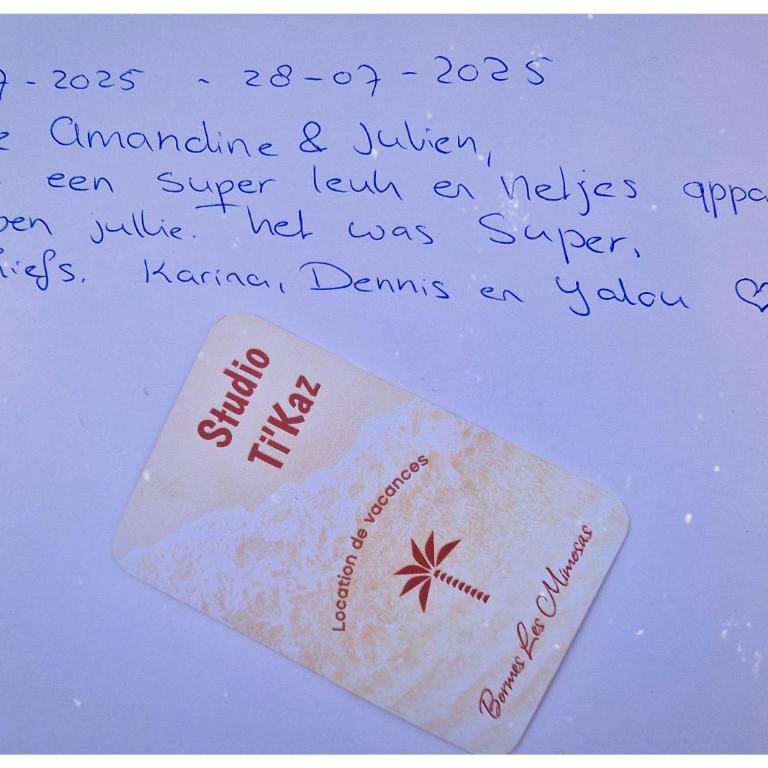 7-2025 - 28-07-2025
e Amandine & Julien,
een super leuk en netjes appa
ben jullie. het was Super,
liefs. Karina, Dennis en Yalou ♡
Studio
Ti'Kaz
Location de vacances
Bormes Les Mimosas